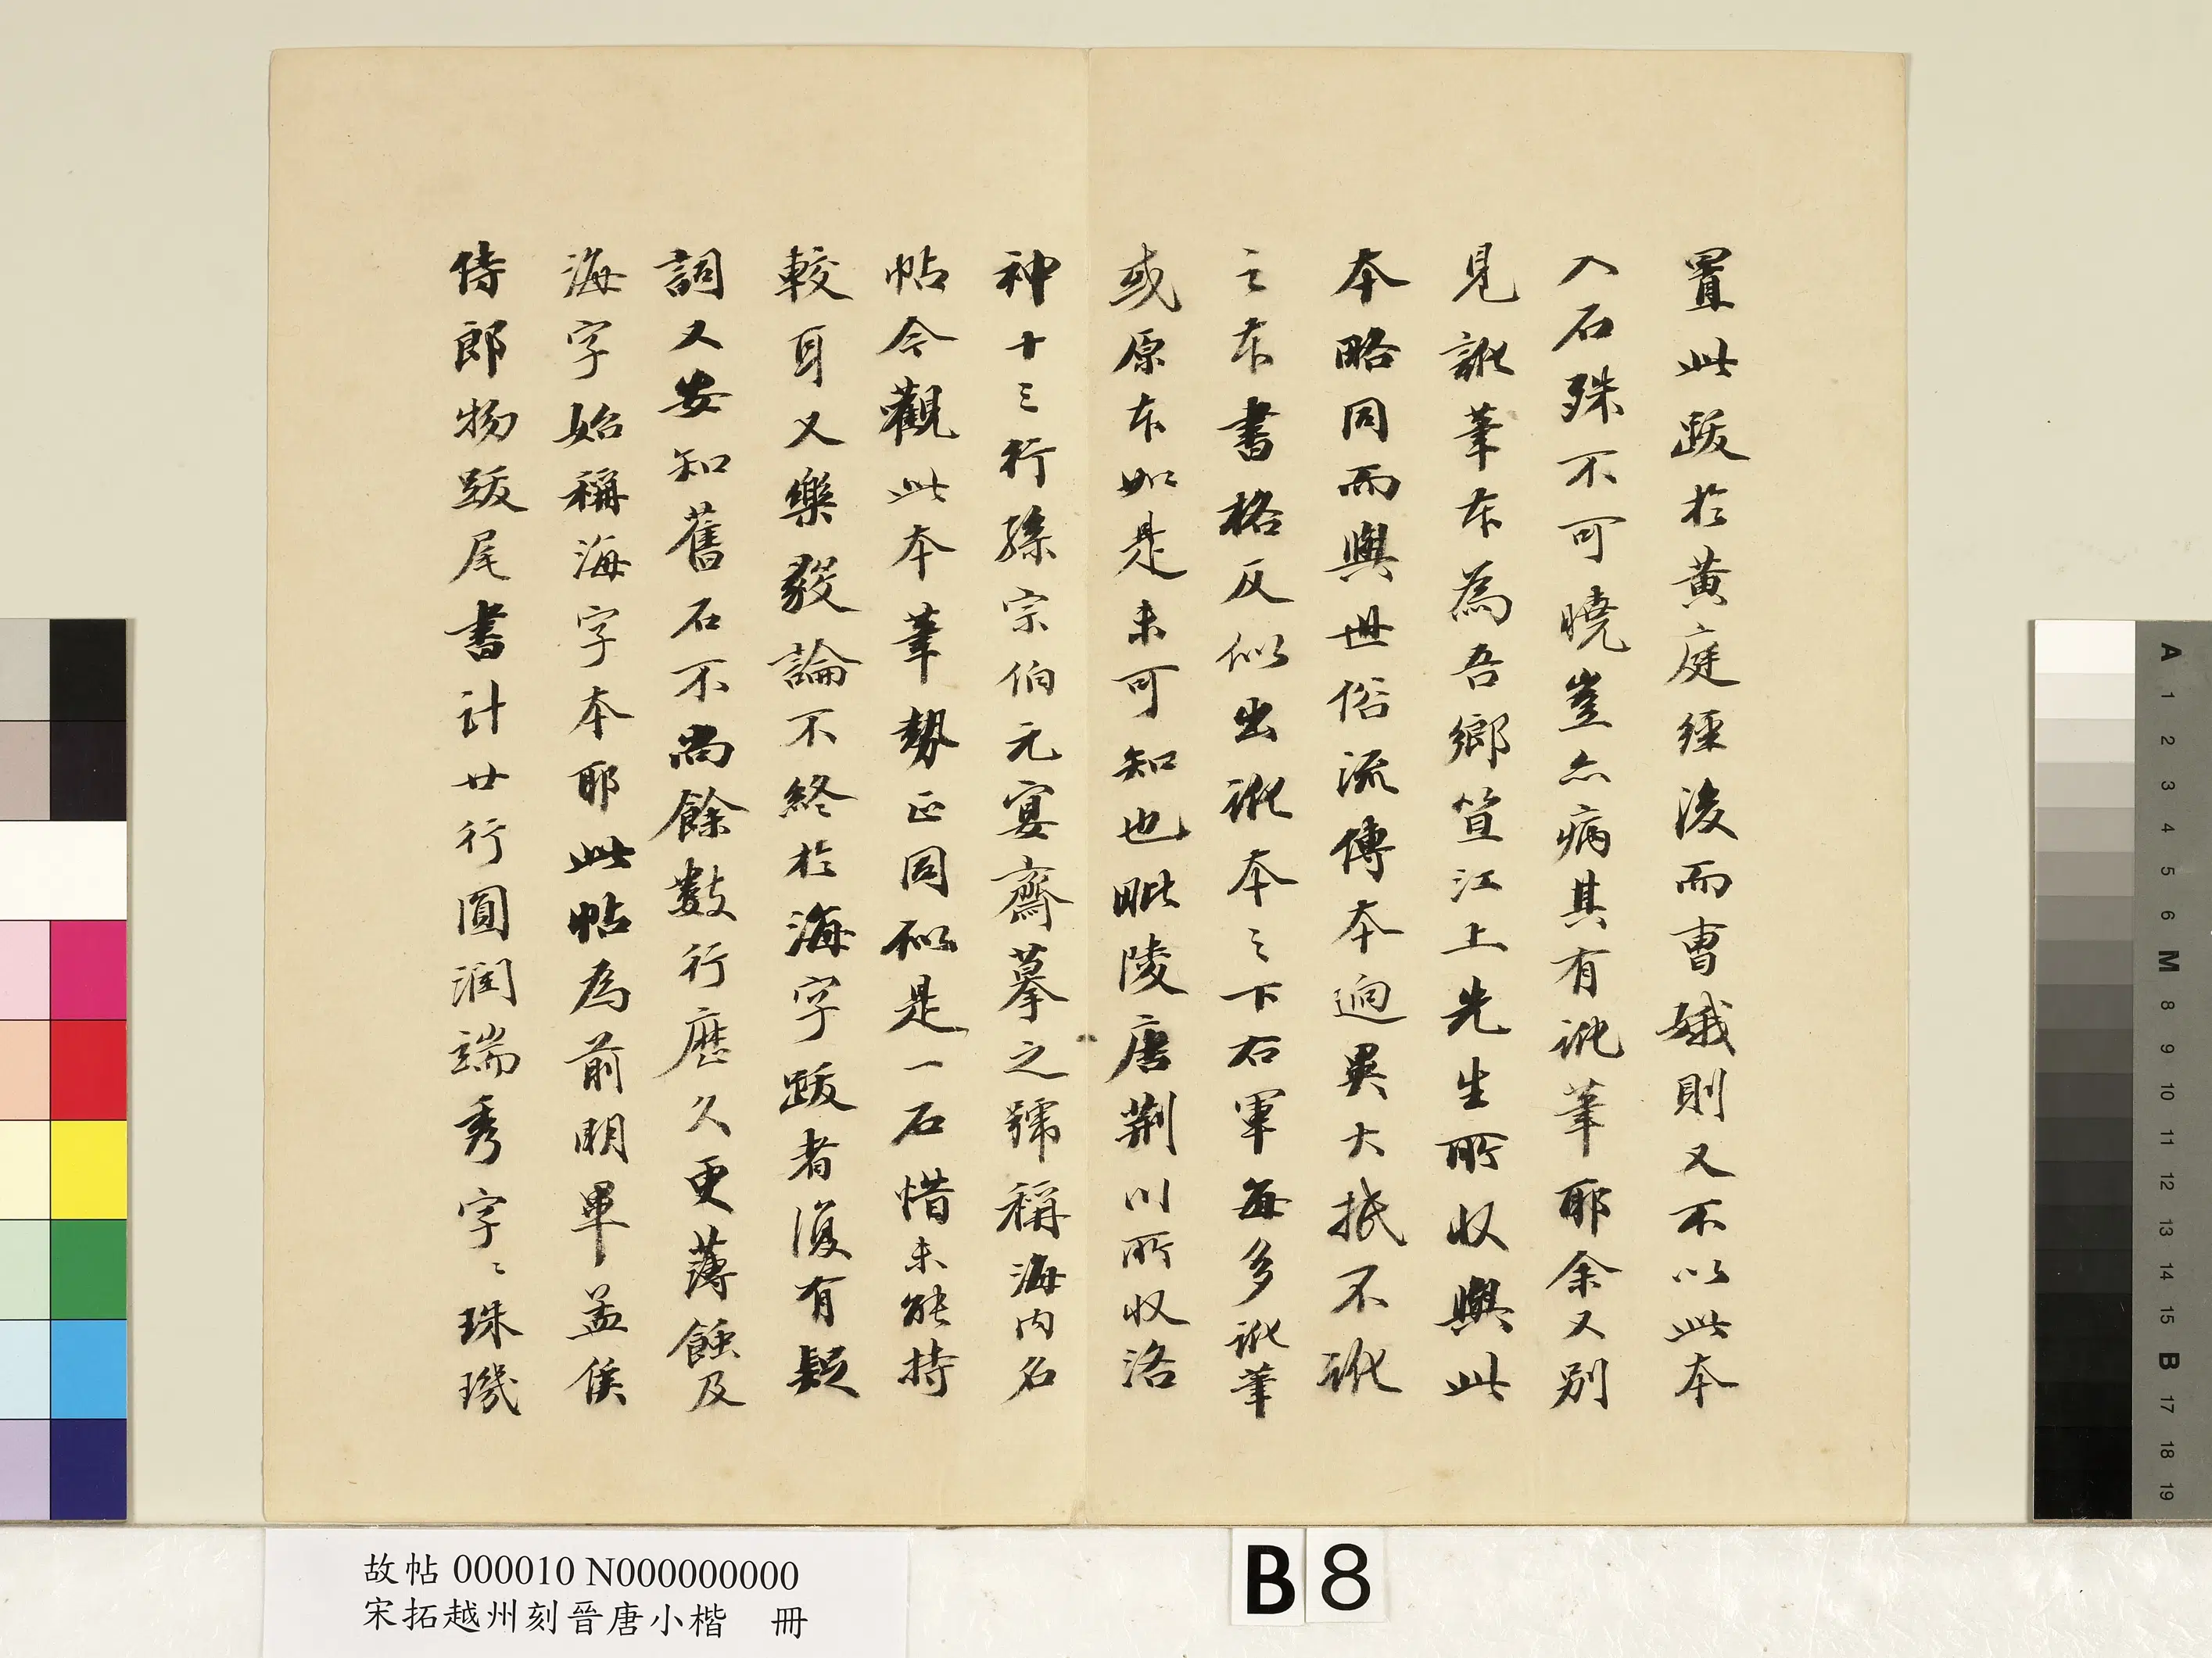 置此跋於黃庭經後而曹娥則又不以此本
入石殊不可曉豈亦病其有訛筆耶余又別
見訛筆本為吾鄉笪江上先生所收與此
本略同而與世俗流傳本迥異大抵不訛
之本書格反似出訛本之下右軍每多訛筆
或原本如是未可知也毗陵唐荊川所收洛
神十三行孫宗伯元宴齋摹之號稱海內名
帖今觀此本筆勢正同似是一石惜未能持
較耳又樂毅論不終於海字跋者復有疑
詞又安知舊石不尚餘數行歷久更薄蝕及
海字始稱海字本耶此帖為前明單孟侯
侍郎物跋尾書計廿行圓潤端秀字〻珠璣
故帖 000010 N000000000
宋拓越州刻晉唐小楷 冊
B 8
A 1 2 3 4 5 6 M 8 9 10 11 12 13 14 15 B 17 18 19